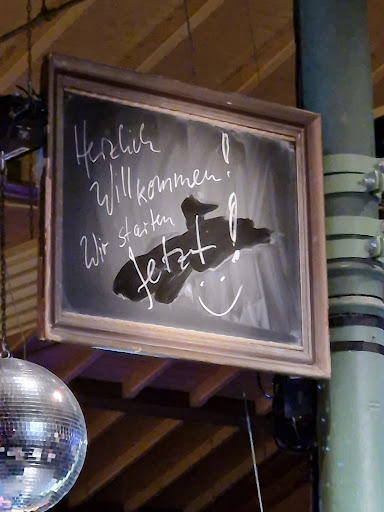 Herzlich
Willkommen!
Wir starten
Jetzt!